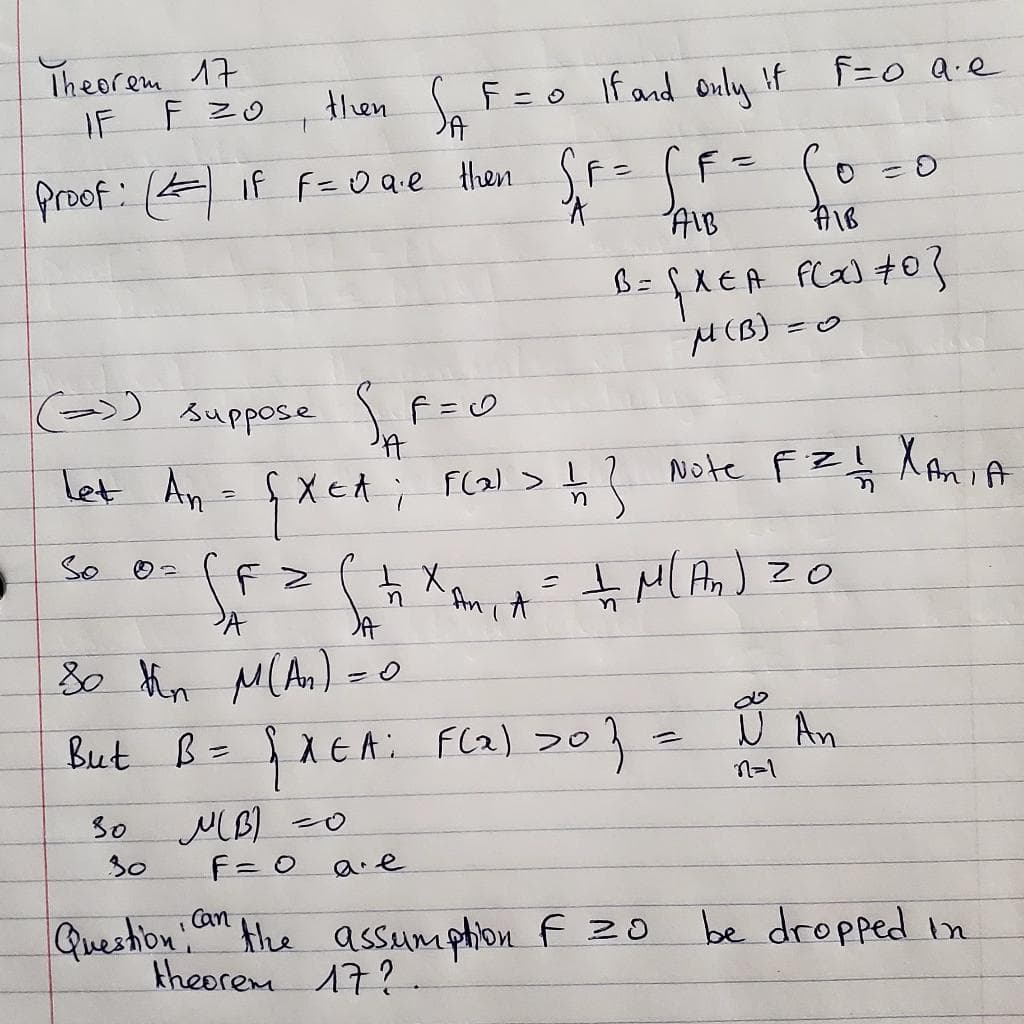 Theorem 17
IF F ≥ 0, then ∫_A F = 0 If and only if F = 0 a.e
Proof: (⇐) if F = 0 a.e then ∫_A F = ∫_{A\B} F = ∫_{A\B} 0 = 0
B = {x ∈ A F(x) ≠ 0}
μ(B) = 0
(⇒) suppose ∫_A F = 0
Let A_n = {x ∈ A; F(x) > 1/n} Note F ≥ 1/n χ_{A_n, A}
So 0 = ∫_A F ≥ ∫_A 1/n χ_{A_n, A} = 1/n μ(A_n) ≥ 0
So ∀n μ(A_n) = 0
But B = {x ∈ A: F(x) > 0} = ∪_{n=1}^∞ A_n
so μ(B) = 0
so F = 0 a.e
Question: can the assumption F ≥ 0 be dropped in
theorem 17?.